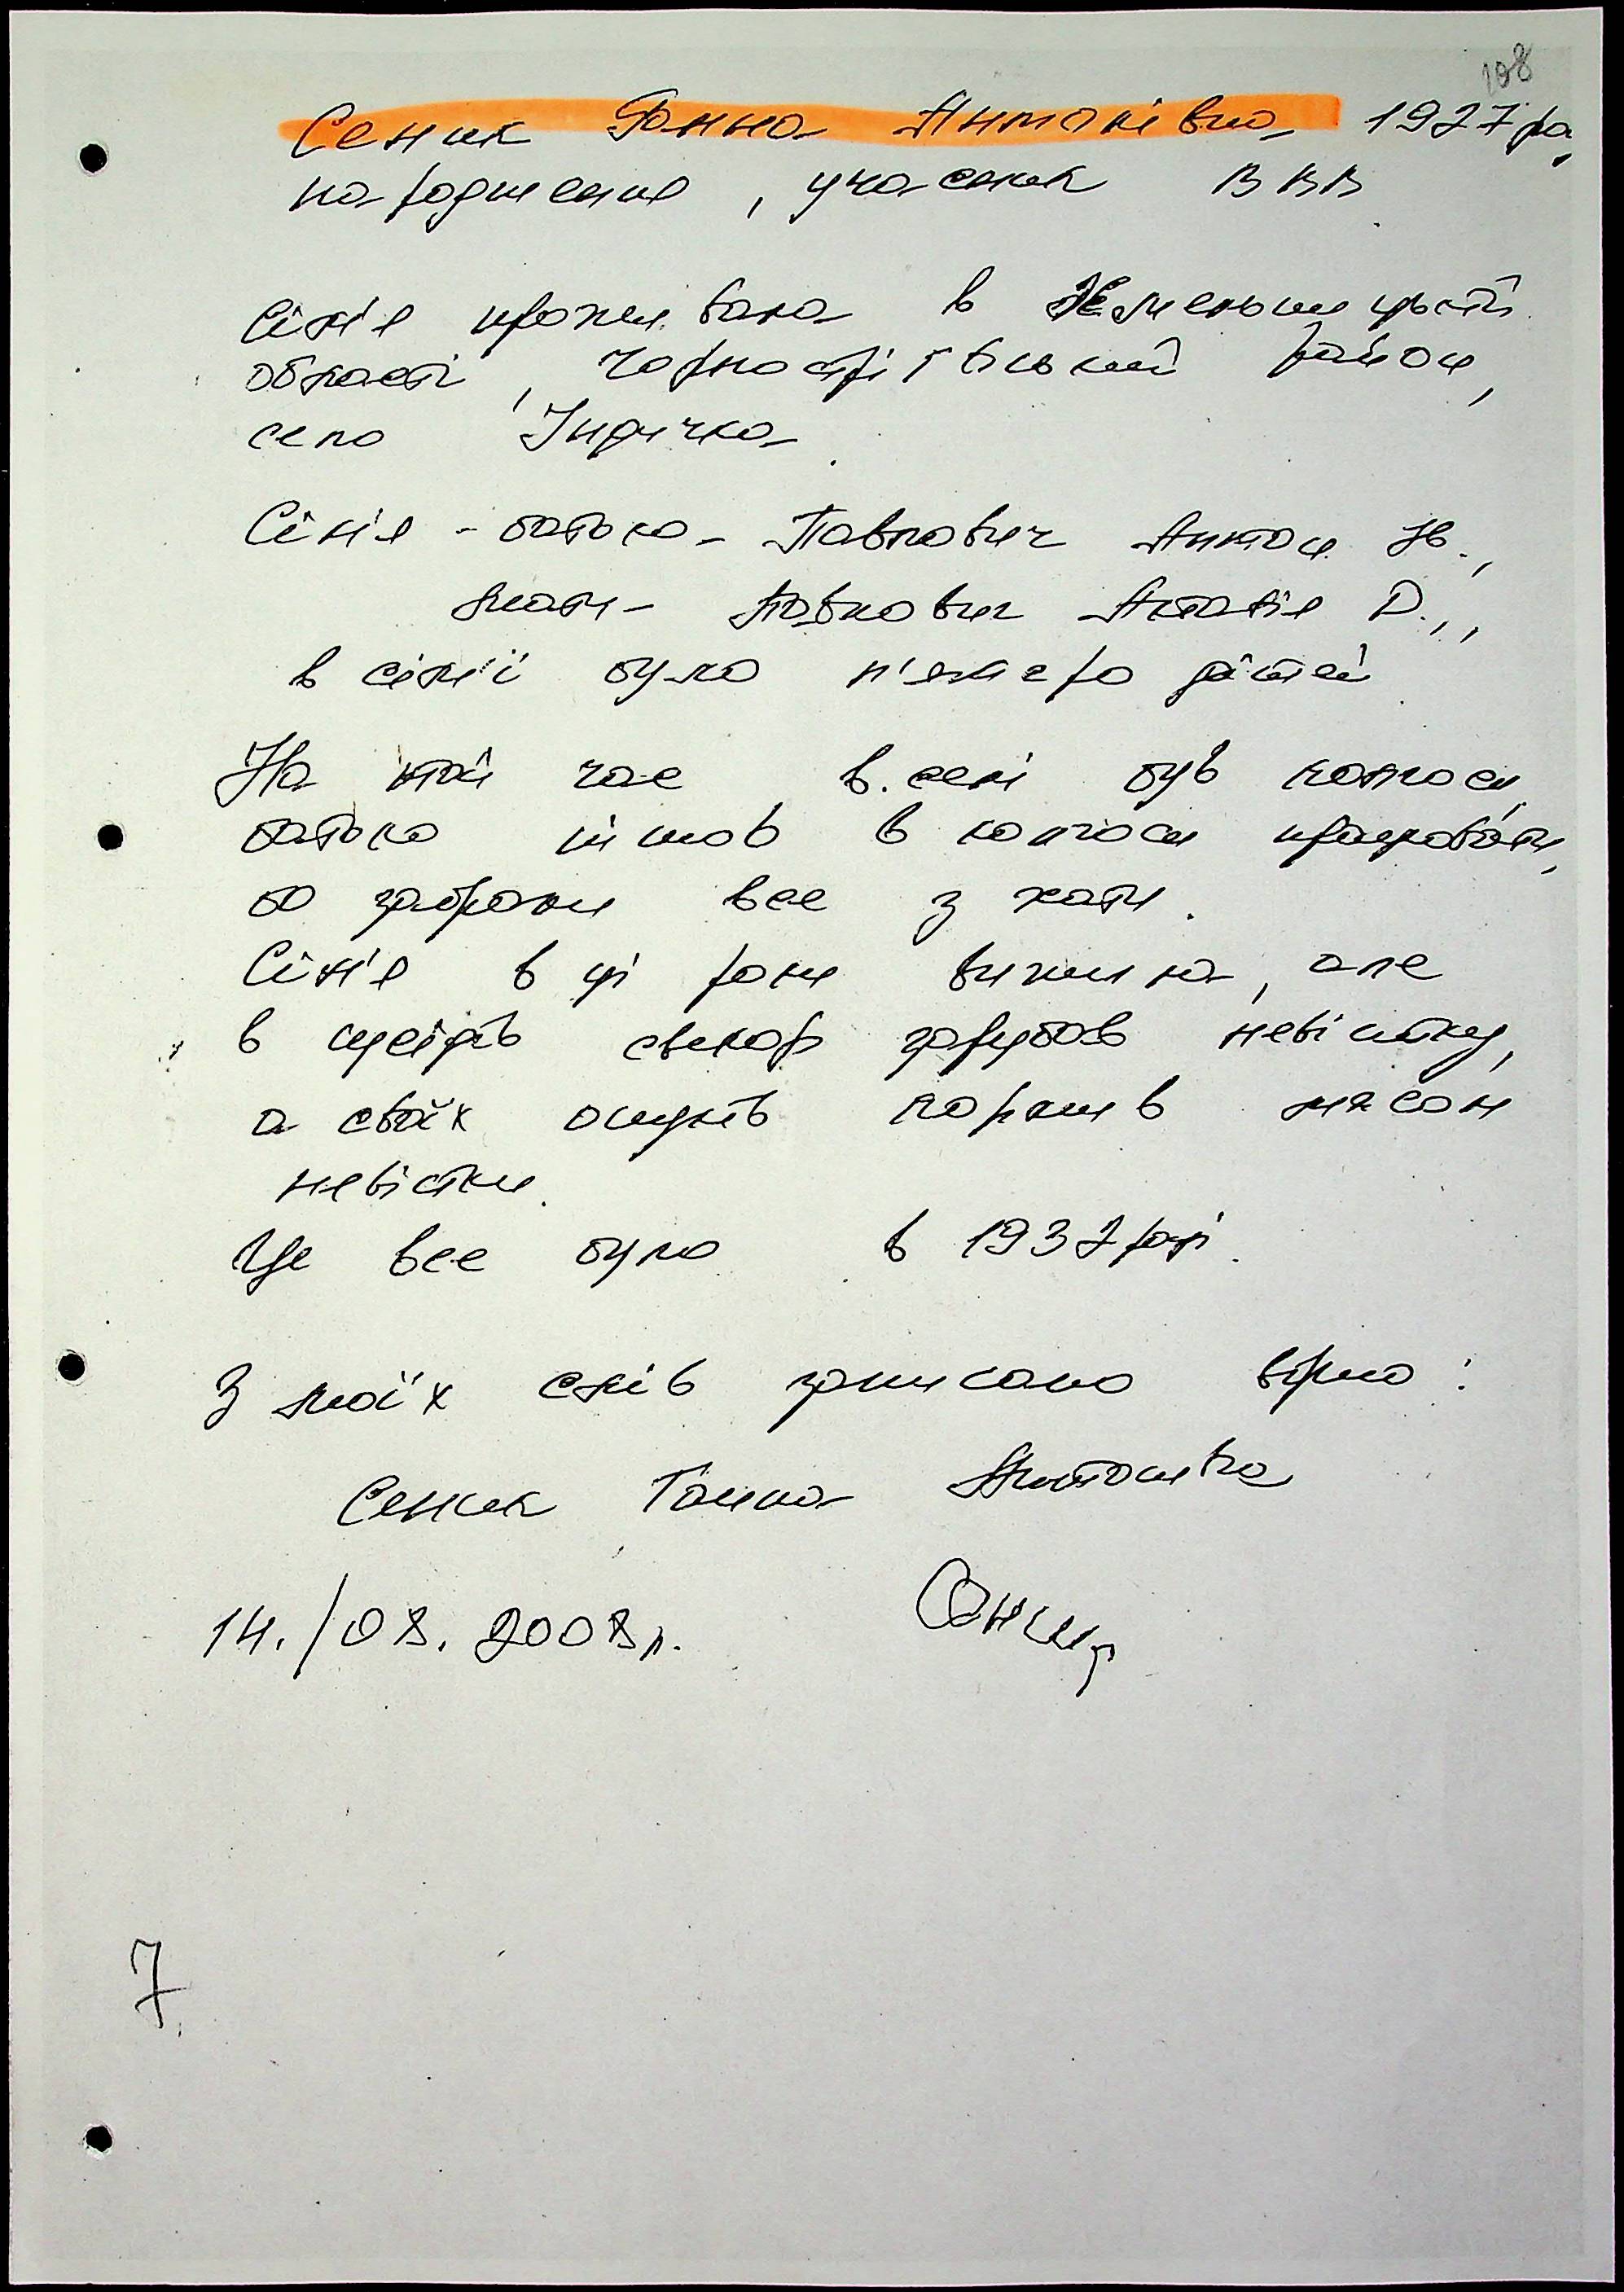 108
Сеник Ганна Антонівна 1927 ро
народження, учасник ВВВ
Сім'я проживала в Хмельницькій
області, Чорноострівський район,
село Індичка.
Сім'я - батько - Павлович Антон Й.,
мати - Павлович Анталія Д.,,
в сім'ї було п'ятеро дітей.
На той час в селі був колгосп,
батько пішов в колгосп працювати,
бо забрали все з хати.
Сім'я в ці роки вижила, але
в сусідів свекор зарубав невістку,
а своїх онуків кормив мясом
невістки.
Це все було в 1932 році.
З моїх слів записано вірно:
Сеник Ганна Антонівна
14./08. 2008 р.
7